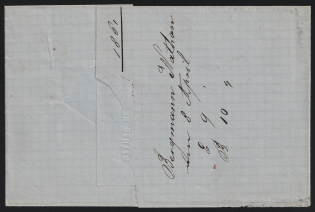 1860
Bergmann Nathan
den 8 April
E 9
B 10 9